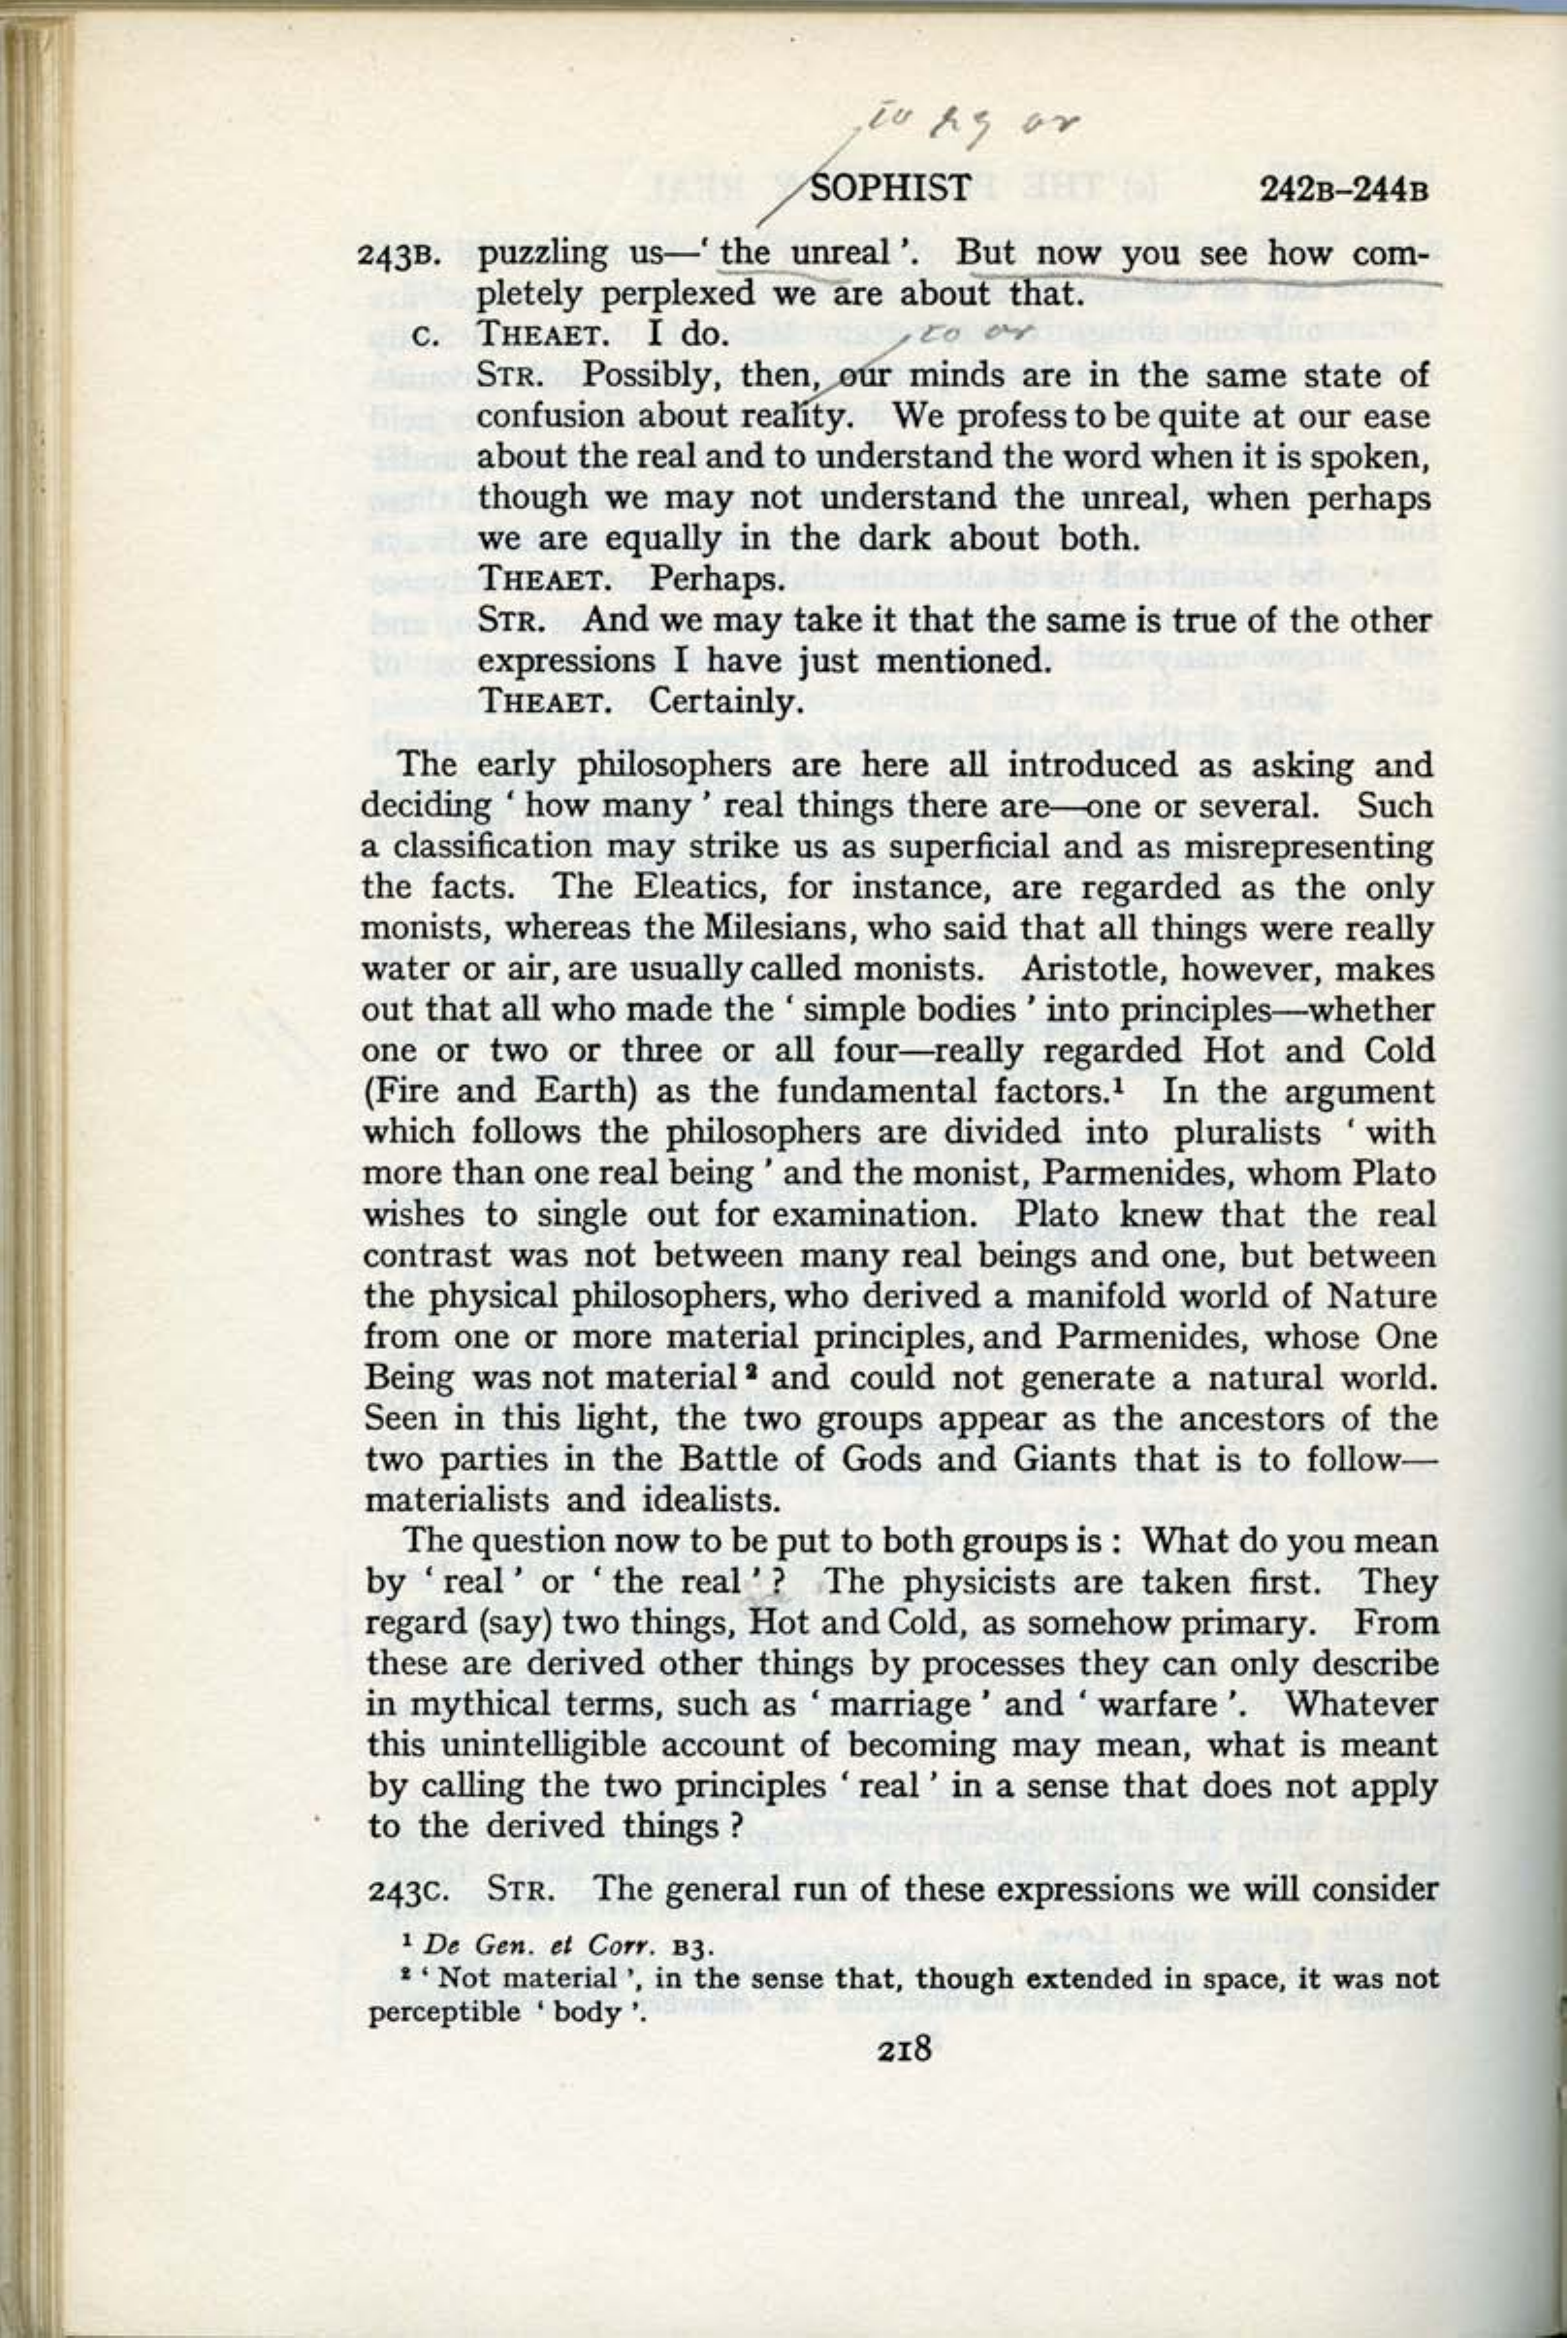 το μη ον
SOPHIST 242B–244B
243B. puzzling us—‘ the unreal ’. But now you see how com-
pletely perplexed we are about that.
C. THEAET. I do.
το ον
STR. Possibly, then, our minds are in the same state of
confusion about reality. We profess to be quite at our ease
about the real and to understand the word when it is spoken,
though we may not understand the unreal, when perhaps
we are equally in the dark about both.
THEAET. Perhaps.
STR. And we may take it that the same is true of the other
expressions I have just mentioned.
THEAET. Certainly.
The early philosophers are here all introduced as asking and
deciding ‘ how many ’ real things there are—one or several. Such
a classification may strike us as superficial and as misrepresenting
the facts. The Eleatics, for instance, are regarded as the only
monists, whereas the Milesians, who said that all things were really
water or air, are usually called monists. Aristotle, however, makes
out that all who made the ‘ simple bodies ’ into principles—whether
one or two or three or all four—really regarded Hot and Cold
(Fire and Earth) as the fundamental factors.¹ In the argument
which follows the philosophers are divided into pluralists ‘ with
more than one real being ’ and the monist, Parmenides, whom Plato
wishes to single out for examination. Plato knew that the real
contrast was not between many real beings and one, but between
the physical philosophers, who derived a manifold world of Nature
from one or more material principles, and Parmenides, whose One
Being was not material² and could not generate a natural world.
Seen in this light, the two groups appear as the ancestors of the
two parties in the Battle of Gods and Giants that is to follow—
materialists and idealists.
The question now to be put to both groups is : What do you mean
by ‘ real ’ or ‘ the real ’ ? The physicists are taken first. They
regard (say) two things, Hot and Cold, as somehow primary. From
these are derived other things by processes they can only describe
in mythical terms, such as ‘ marriage ’ and ‘ warfare ’. Whatever
this unintelligible account of becoming may mean, what is meant
by calling the two principles ‘ real ’ in a sense that does not apply
to the derived things ?
243C. STR. The general run of these expressions we will consider
¹ De Gen. et Corr. B3.
² ‘ Not material ’, in the sense that, though extended in space, it was not
perceptible ‘ body ’.
218